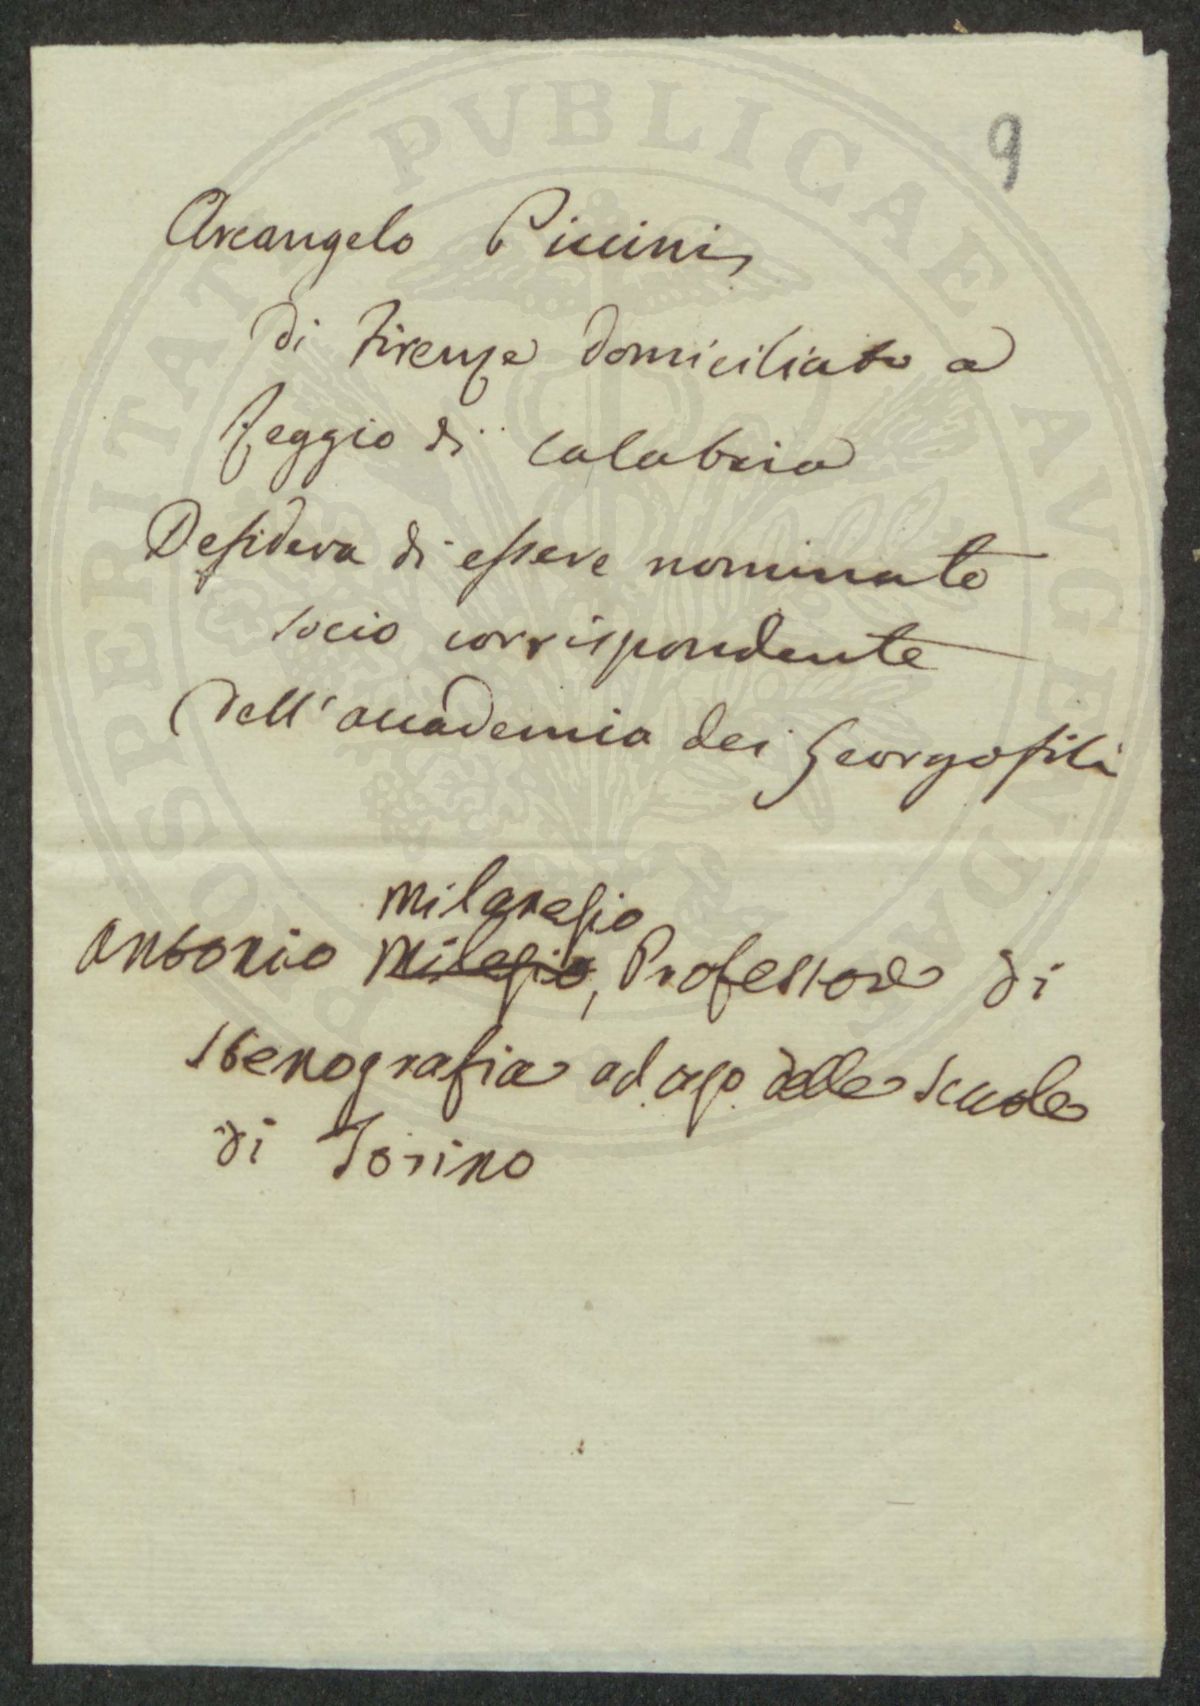 PROSPERITATI PVBLICAE AVGENDAE
9
Arcangelo Piccini
di Firenze domiciliato a
Reggio di Calabria
Desidera di essere nominato
socio corrispondente
dell'accademia dei Georgofili
Milanesio
Antonio Milesio, Professore di
Stenografia ad. delle Scuole
di Torino